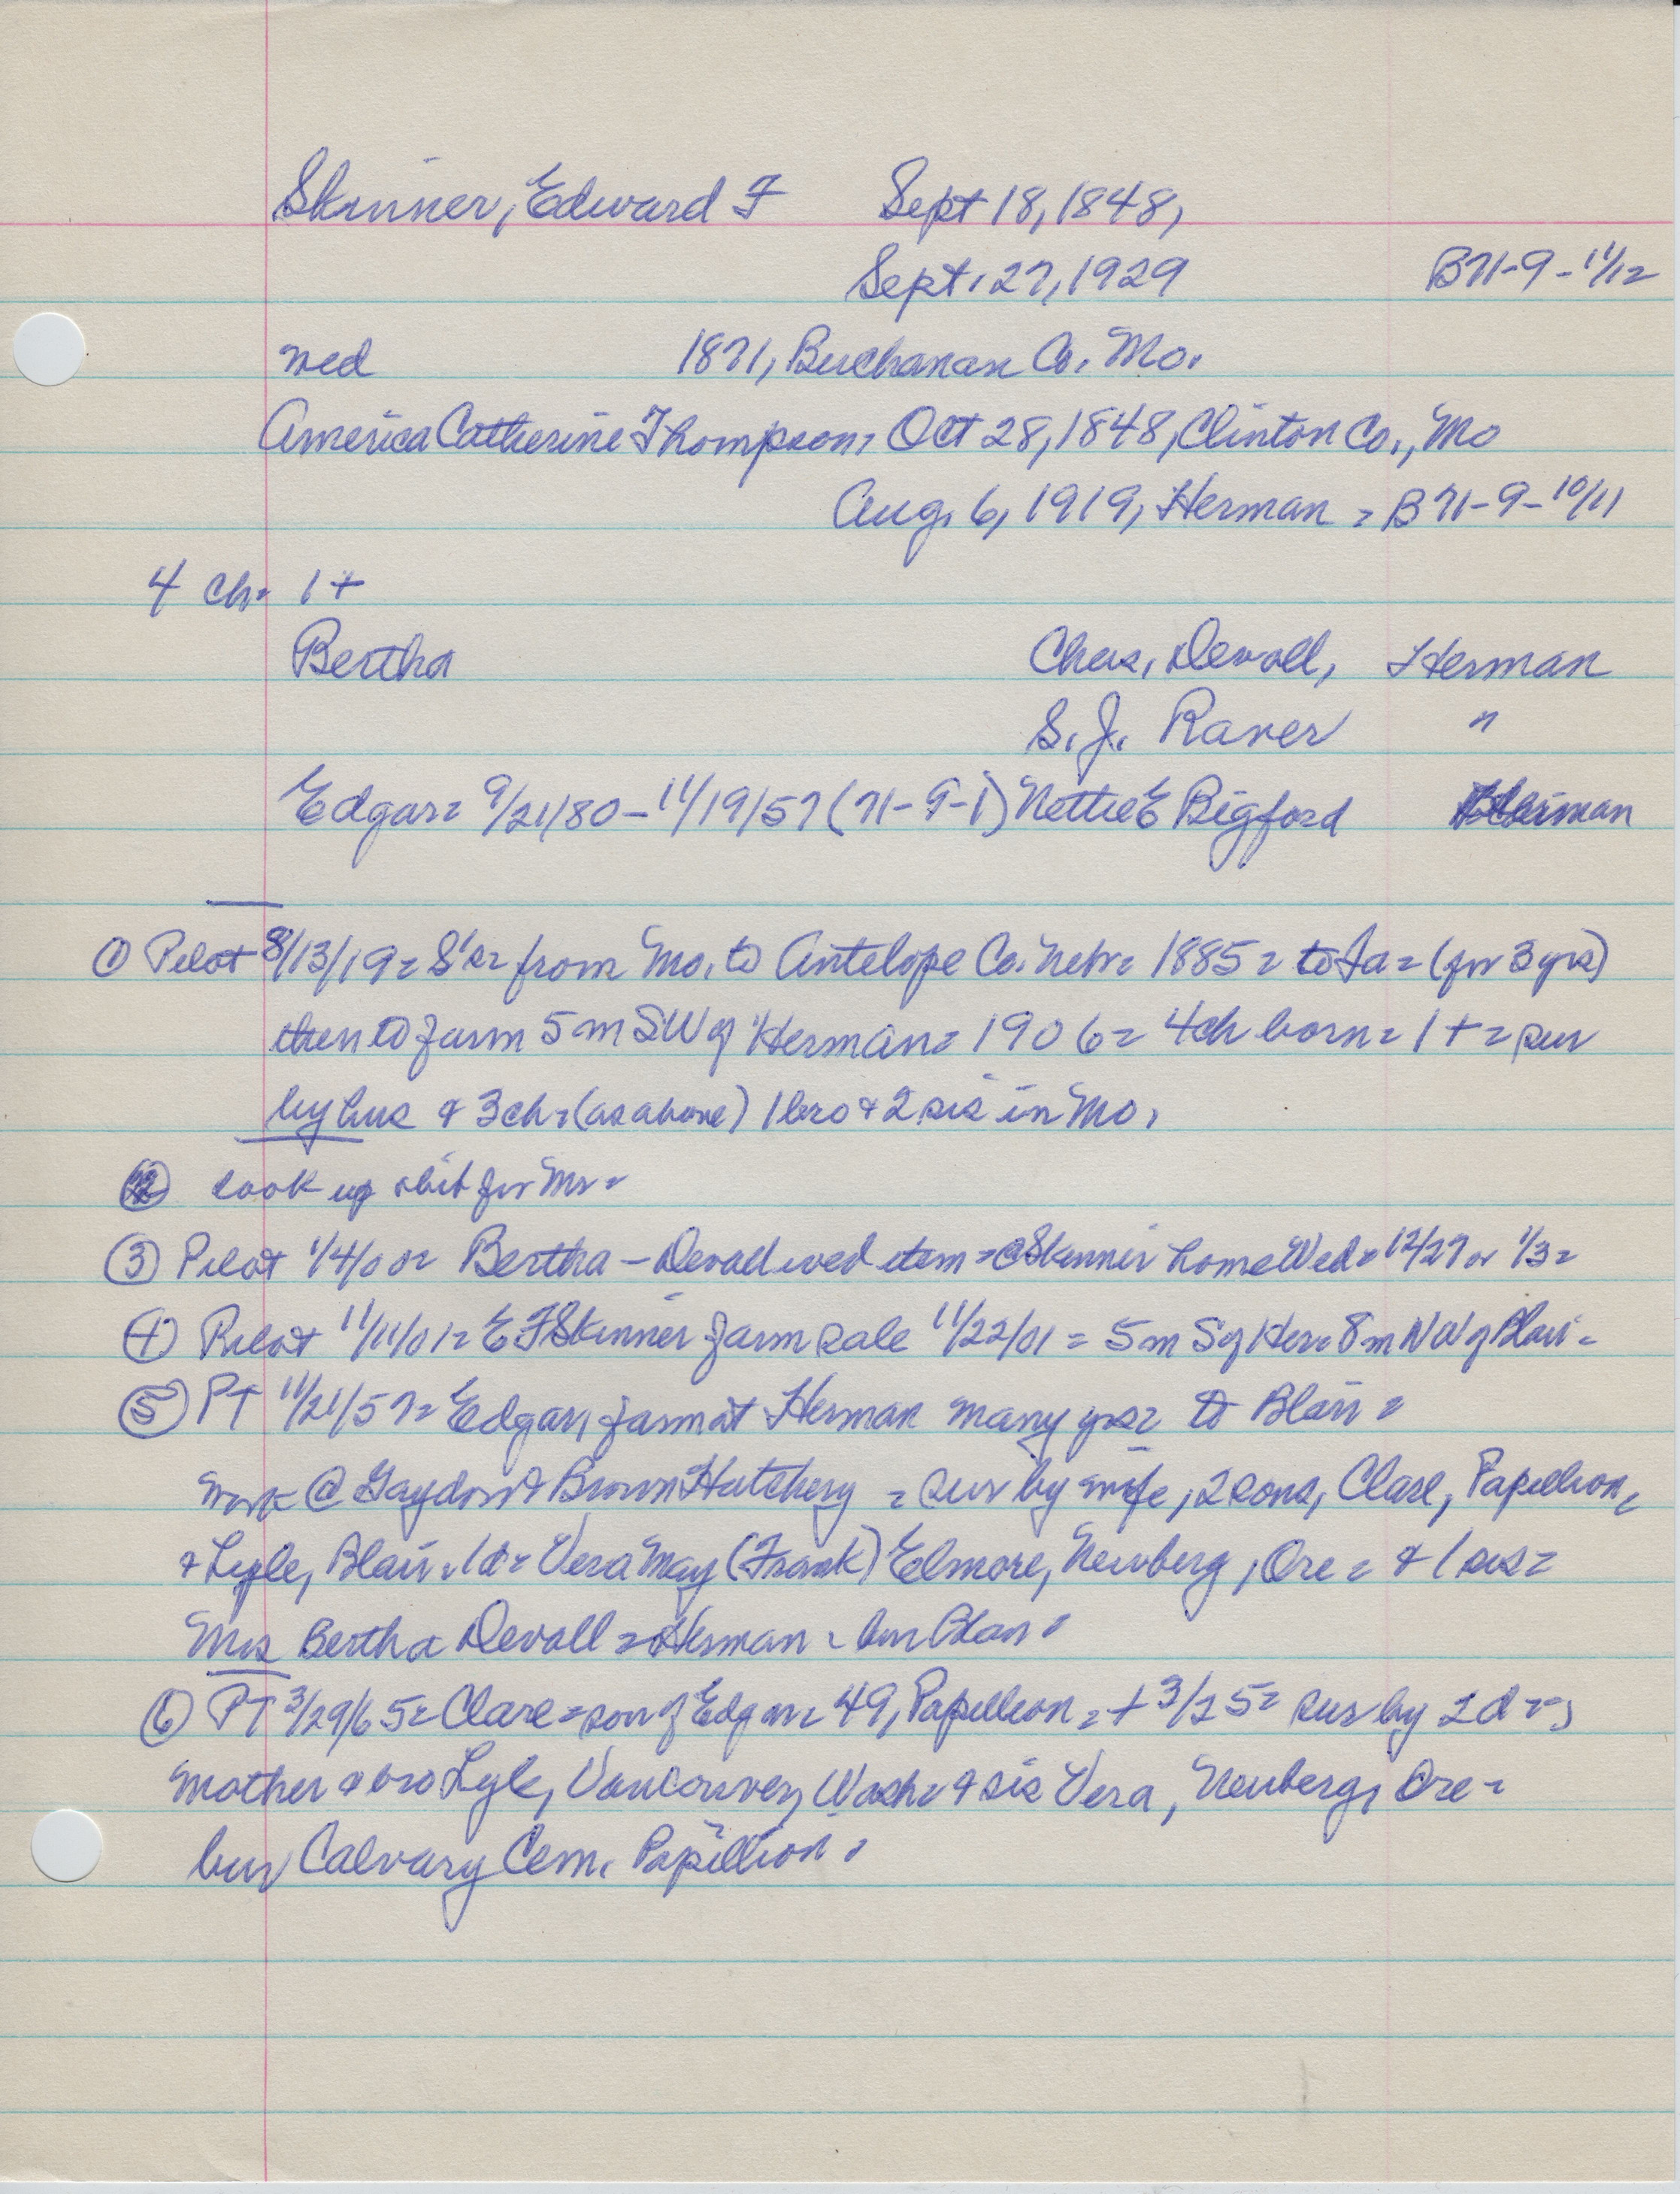 Skinner, Edward F Sept 18, 1848,
Sept. 27, 1929 B71-9-11/12
wed 1871, Buchanan Co. Mo.
America Catherine Thompson, Oct 28, 1848, Clinton Co., Mo
Aug. 6, 1919, Herman = B71-9-10/11
4 ch= 1+
Bertha Chas. Devoll, Herman
S. J. Raver "
Edgar= 9/21/80-11/19/57 (71-9-1) Nettie E Bigford Herman
① Pilot 8/13/19= S's= from Mo. to Antelope Co. Nebr= 1885= to Ia= (for 3 yrs)
then to farm 5 m SW of Herman= 1906= 4 ch born= 1+= sur
by hus & 3 ch= (as above) 1 bro & 2 sis in Mo.
② look up obit for Mr=
③ Pilot 1/4/00= Bertha - Devoll wed item = @ Skinner home Wed= 12/27 or 1/3=
④ Pilot 11/11/01= E F Skinner farm sale 11/22/01 = 5 m S of Her= 8 m NW of Blair=
⑤ PT 11/21/57= Edgar, farm at Herman many yrs= to Blair=
work @ Gaydou & Brown Hatchery = sur by wife, 2 sons, Clare, Papillion,
& Lyle, Blair. 1d= Vera May (Frank) Elmore, Newberg, Ore= & 1 sis=
Mrs Bertha Devoll = Herman = bur Blair=
⑥ PT 3/29/65= Clare= son of Edgar= 49, Papillion,= + 3/25= sur by 2 d=,
mother & bro Lyle, Vancouver, Wash= & sis Vera, Newberg, Ore=
bur Calvary Cem. Papillion=